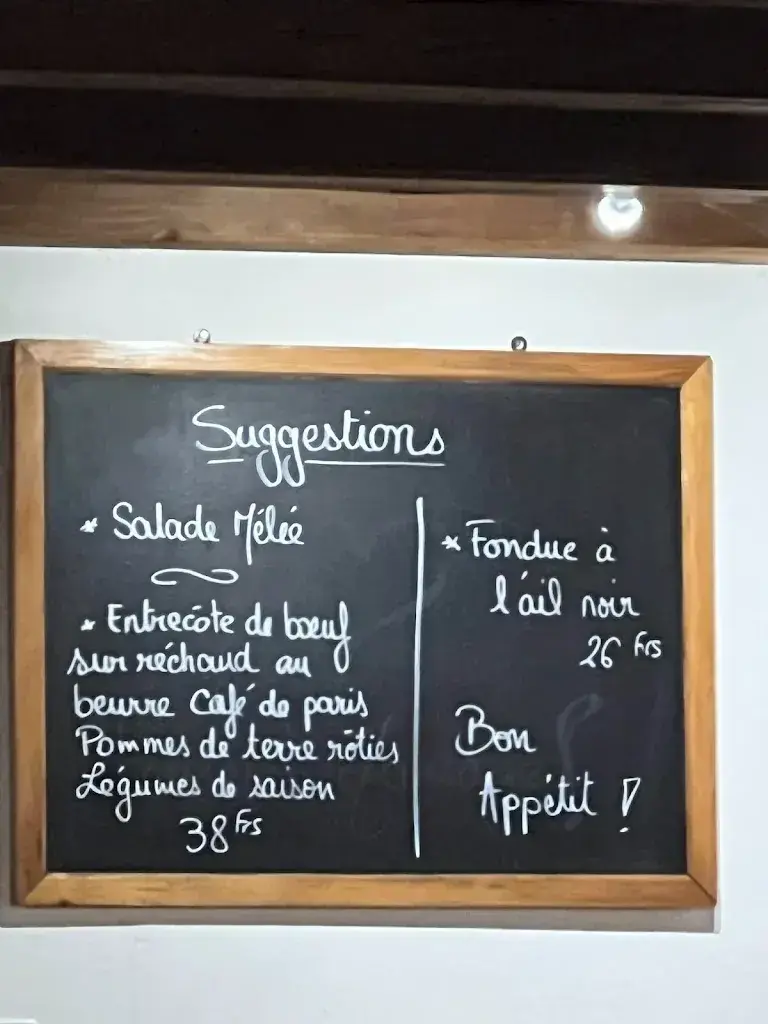 Suggestions
* Salade Mêlée
* Entrecôte de bœuf
sur réchaud au
beurre Café de paris
Pommes de terre rôties
Légumes de saison
38 Frs
* Fondue à
l'ail noir
26 Frs
Bon
Appétit !